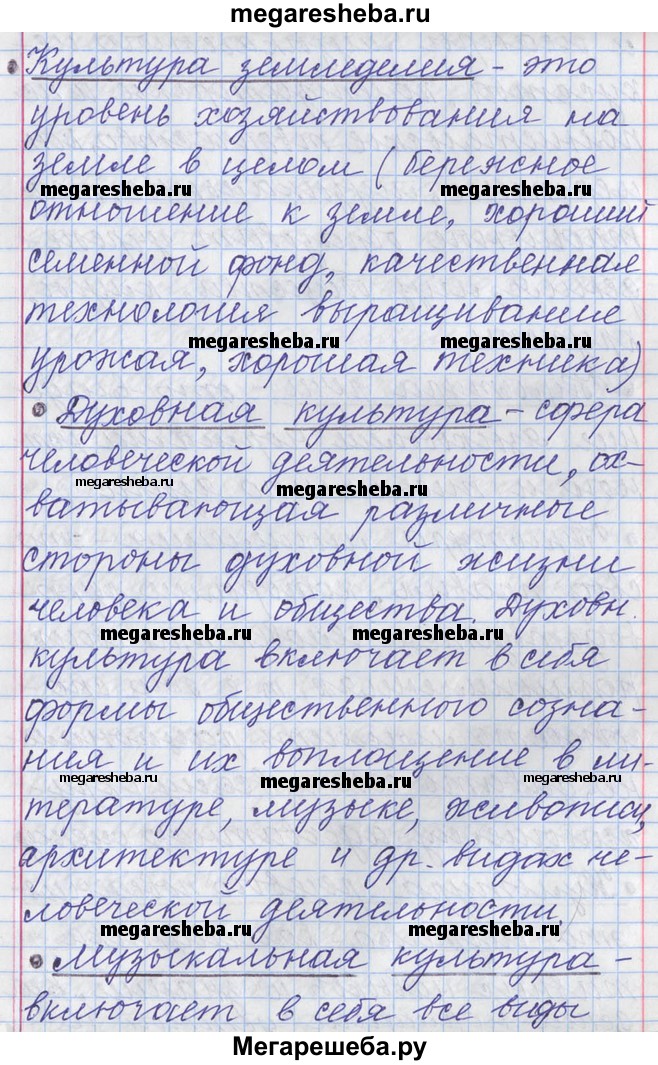 megaresheba.ru
• Культура земледелия - это
уровень хозяйствования на
земле в целом (бережное
megaresheba.ru megaresheba.ru
отношение к земле, хороший
семенной фонд, качественная
технология выращивание
megaresheba.ru megaresheba.ru
урожая, хорошая техника)
• Духовная культура - сфера
человеческой деятельности, ох-
megaresheba.ru megaresheba.ru
ватывающая различные
стороны духовной жизни
человека и общества. Духовн.
megaresheba.ru megaresheba.ru
культура включает в себя
формы общественного созна-
ния и их воплощение в ли-
megaresheba.ru megaresheba.ru megaresheba.ru
тературе, музыке, живописи,
архитектуре и др. видах че-
ловеческой деятельности.
megaresheba.ru megaresheba.ru
• Музыкальная культура -
включает в себя все виды
Мегарешеба.ру